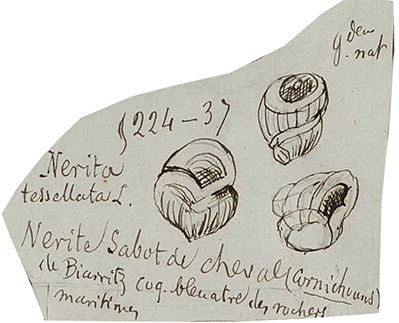 gdeur
nat
§224-37
Nerita
tessellata L.
Nerite Sabot de cheval (cornichouns)
de Biarritz coq. bleuatre des rochers
maritimes